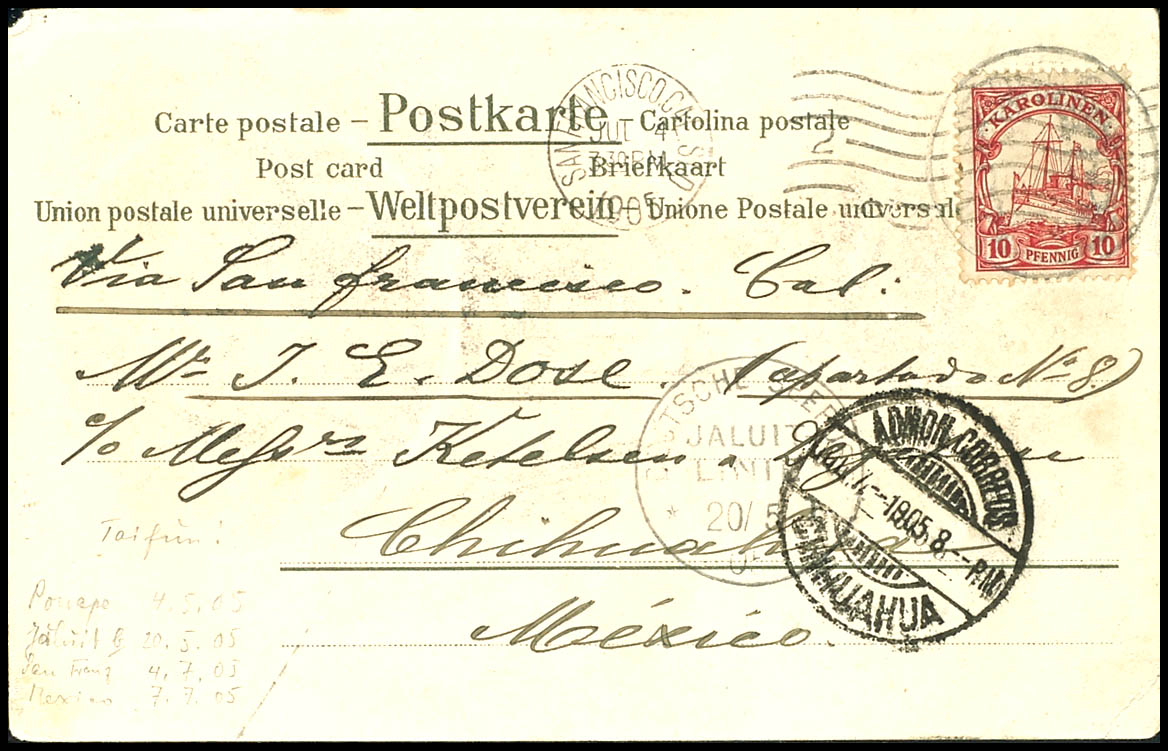 Postkarte
Carte postale – – Cartolina postale
Post card Briefkaart
Union postale universelle – Weltpostverein – Unione Postale universale
KAROLINEN
10 PFENNIG 10
SAN FRANCISCO, CAL.
4
7 30 PM
1905
2
Via San francisco. Cal:
Mr J. E. Dose. (apartado No 8.)
c/o Messrs Ketelsen &
Chihuahua
México.
DEUTSCHE SEEPOST
JALUIT
LINIE
20/5
ADMON. CORREOS.
1905. 8. – P.M.
CHIHUAHUA
Taifun!
Ponape 4.5.05
Jaluit 20.5.05
San Franz 4.7.05
Mexico 7.7.05